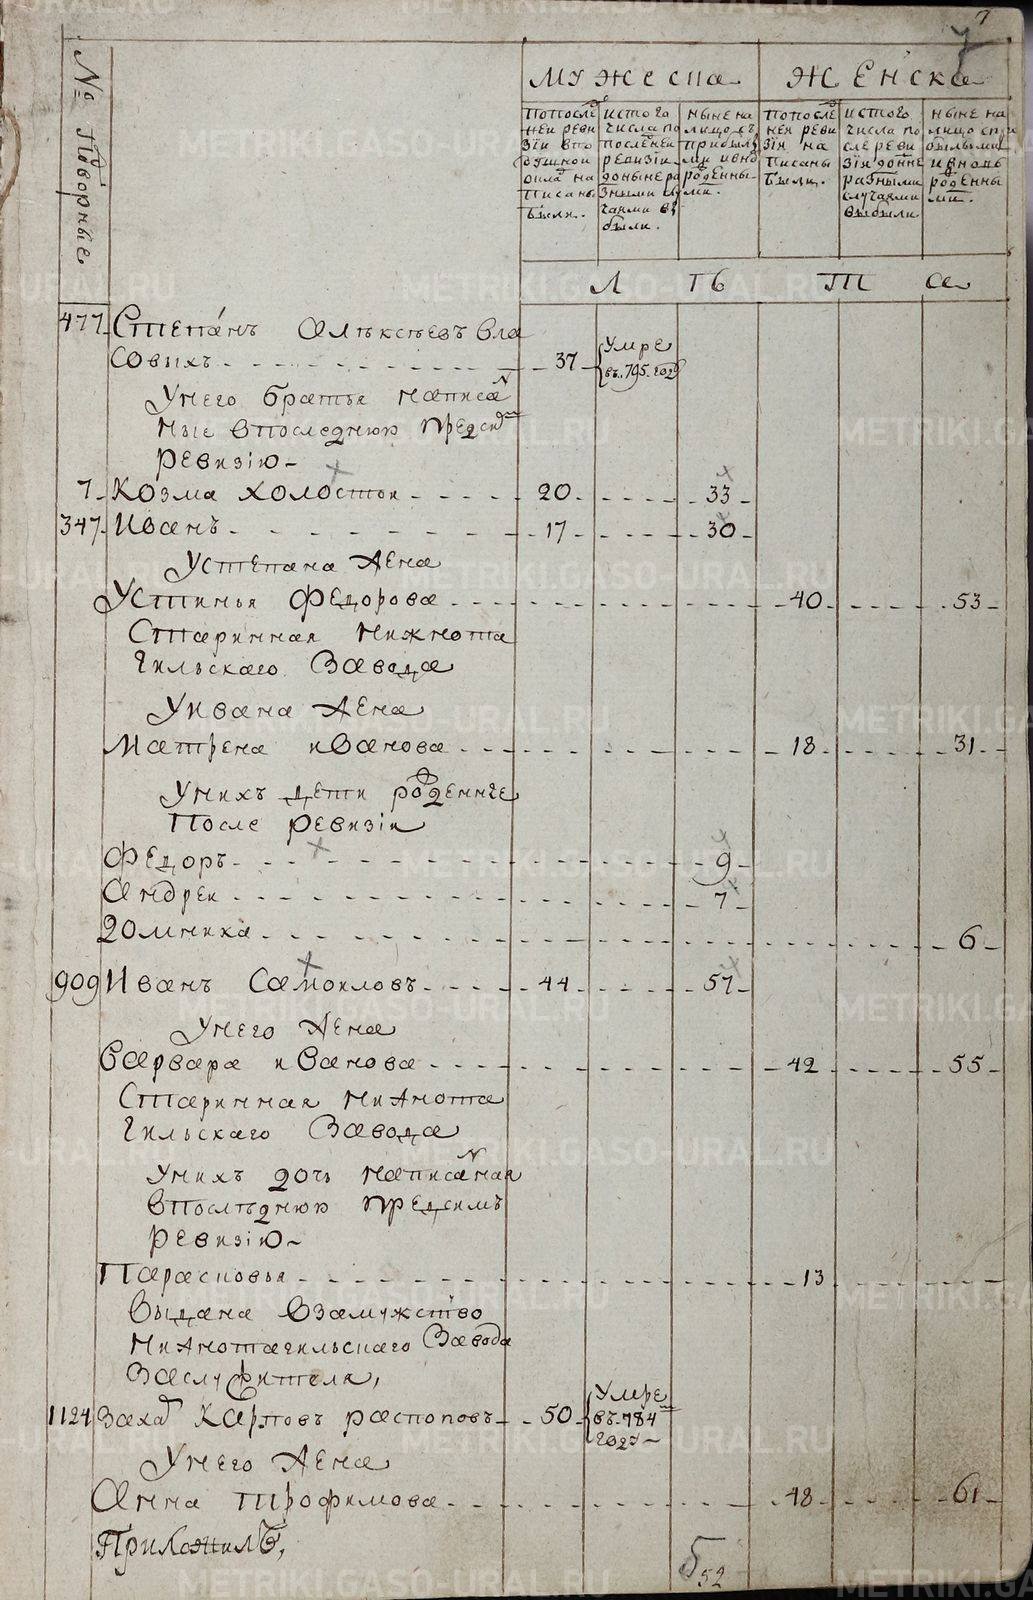 7
№ Подворные
Мужеска
Женска
По после
ней реви
зіи въ по
душной
окладъ на
писаны
были.
Ис того
числа по
после ней
ревизіи
до ныне ра
зными слу
чаями вы
были.
Ныне на
лицо съ
прибылы
ми и вно
рожденны
ми.
По после
ней реви
зіи на
писаны
были.
Ис того
числа по
сле реви
зіи до нне
разными
случаями
выбыли
Ныне на
лицо с при
былыми
и вновь
рожденны
ми.
Л ѣ т а
477 Степанъ Алѣксѣевъ Вла
совыхъ 37 Умре
въ 795 году
У него братья написан
ные в последнюю предсим
ревизію
7 Козма холостои 20 33
347 Иванъ 17 30
У Степана жена
Устинья Федорова 40 53
Старинная Нижнота
гильскаго Завода
У Ивана жена
Матрена Иванова 18 31
У нихъ дети рожденные
после ревизіи
Федоръ 9
Андреи 7
Домника 6
909 Иванъ Самоиловъ 44 57
У него жена
Варвара Иванова 42 55
Старинная Нижнота
гильскаго Завода
У нихъ дочь написанная
в послѣднюю предсимъ
ревизію
Парасковья 13
Выдана в замужство
Нижнотагильскаго Завода
за служителя,
1124 Захаръ Карповъ Распоповъ 50 Умре
въ 784
году
У него жена
Анна Трофимова 48 61
Приложилъ,
52
METRIKI.GASO-URAL.RU